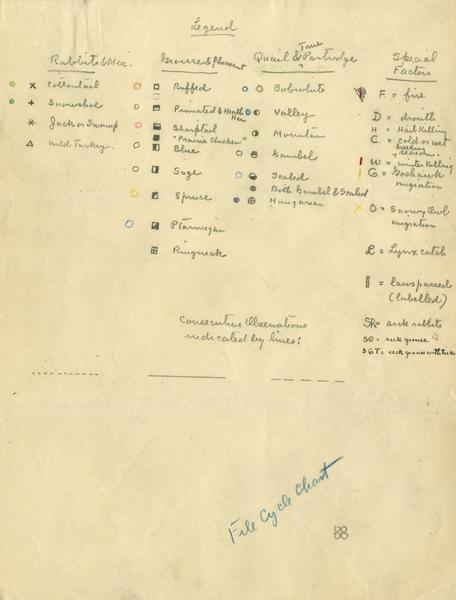 Legend
Rabbits & Misc.
x cottontail
+ Snowshoe
* Jack or Swamp
△ Wild Turkey.
Grouse & Pheasant
Ruffed
Pinnated & Heath Hen
Sharptail
"Prairie Chicken"
Blue
Sage
Spruce
Ptarmigan
Ringneck
Quail & True Partridge
Bobwhite
Valley
Mountain
Gambel
Scaled
Both Gambel & Scaled
Hungarian
Special
Factors
F. = fire
D = drouth
H = Hail Killing
C = cold or wet
breeding
season.
W = winter Killing
G = Goshawk
migration
O = Snowy Owl
migration
L = Lynx catch
|| = laws passed
(labelled)
SR = sick rabbits
SG = sick grouse
SGT = sick grouse with ticks
Consecutive Observations
indicated by lines:
File Cycle Chart